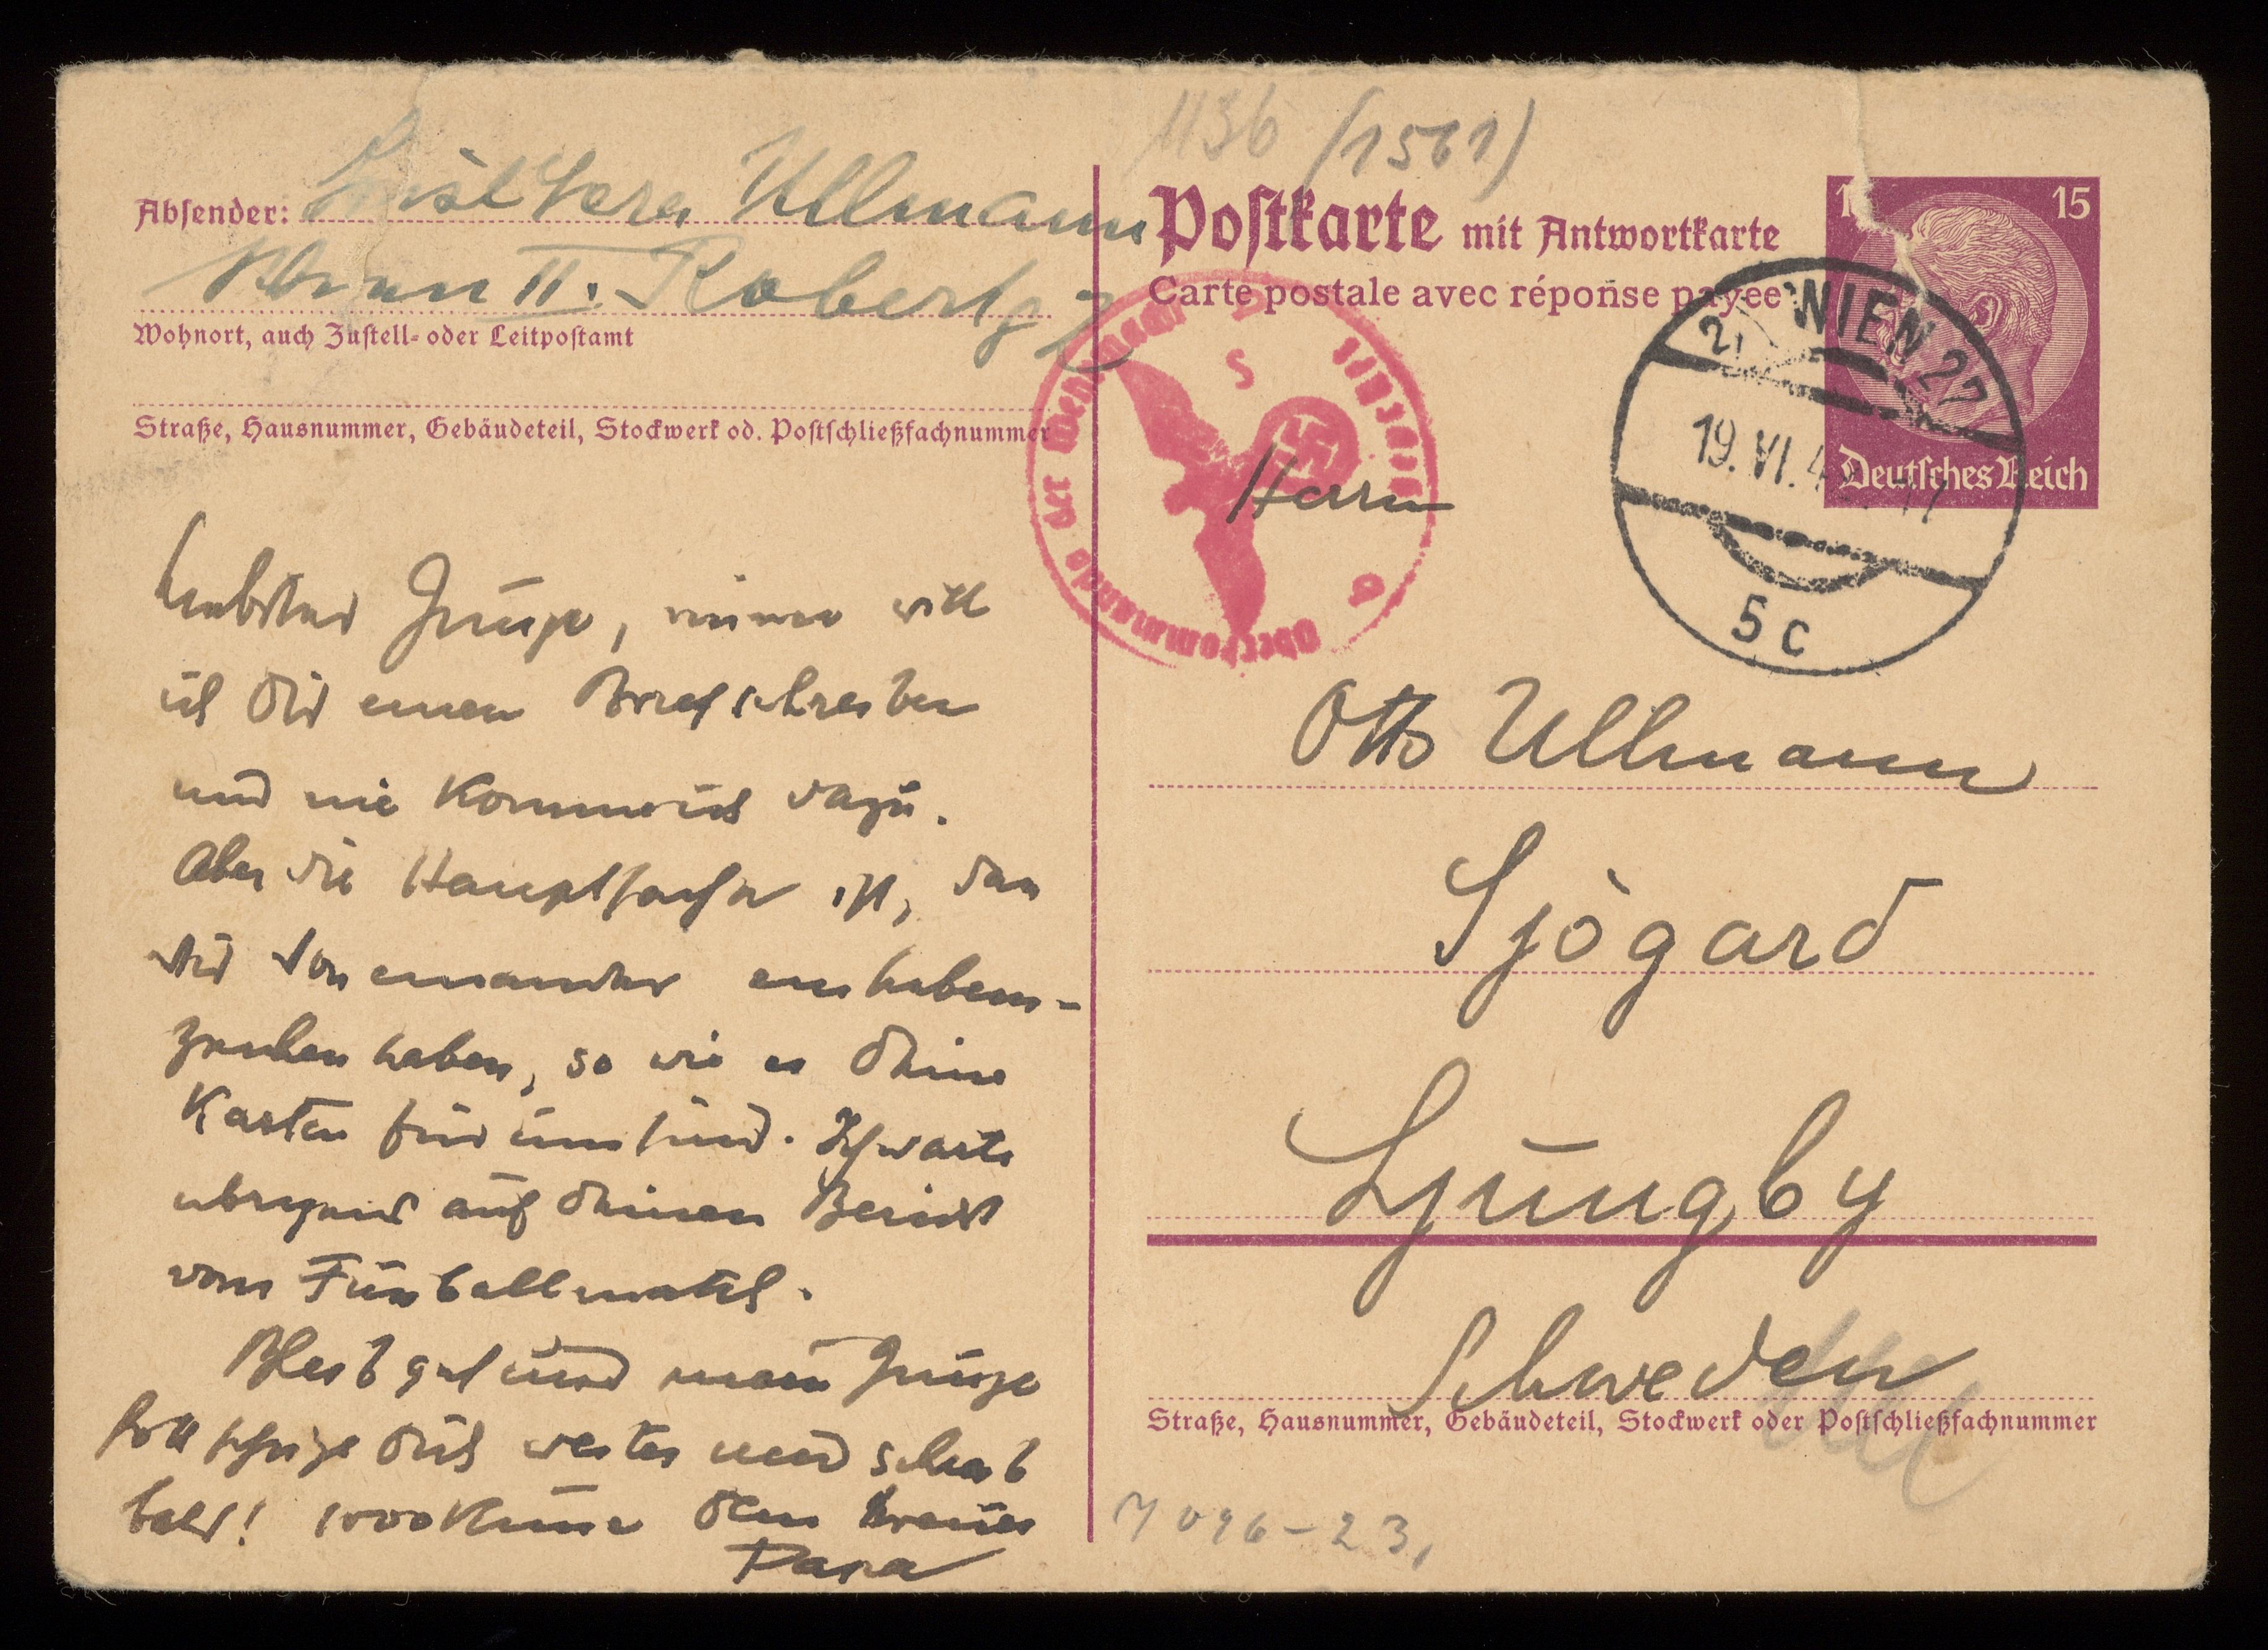 1136 (1561)
Absender: Ullmann
Wien II. Robertg 2
Wohnort, auch Zustell- oder Leitpostamt
Straße, Hausnummer, Gebäudeteil, Stockwerk od. Postschließfachnummer
Liebster Junge, immer will
ich Dir einen Brief schreiben
und nie komme ich dazu.
Aber die Hauptsache ist, dass
wir von einander ein Lebens-
zeichen haben, so wie es Deine
Karten für uns sind. Ich warte
übrigens auf Deinen Bericht
vom Fussballmatch.
Bleib gut und mein Junge
Gott schütze Dich weiter und schreib
bald! 1000 Küsse Dein treuer
Papa
Postkarte mit Antwortkarte
Carte postale avec réponse payée
15 15
Deutsches Reich
WIEN 27
19. VI. 4
5 c
Oberkommando der Wehrmacht
Herrn
Otto Ullmann
Sjögard
Ljungby
Schweden
Straße, Hausnummer, Gebäudeteil, Stockwerk oder Postschließfachnummer
7096-23,